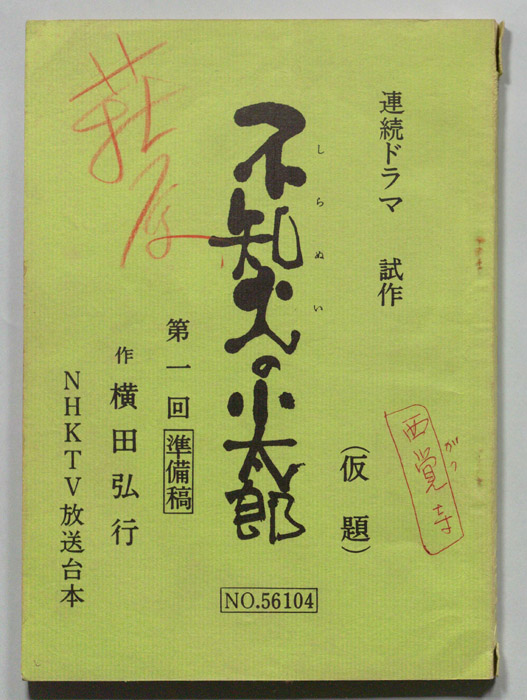 連続ドラマ 試作
しらぬい
不知火の小太郎
(仮題)
第一回 準備稿
作 横田弘行
NHKTV放送台本
NO.56104
がく
西覚寺